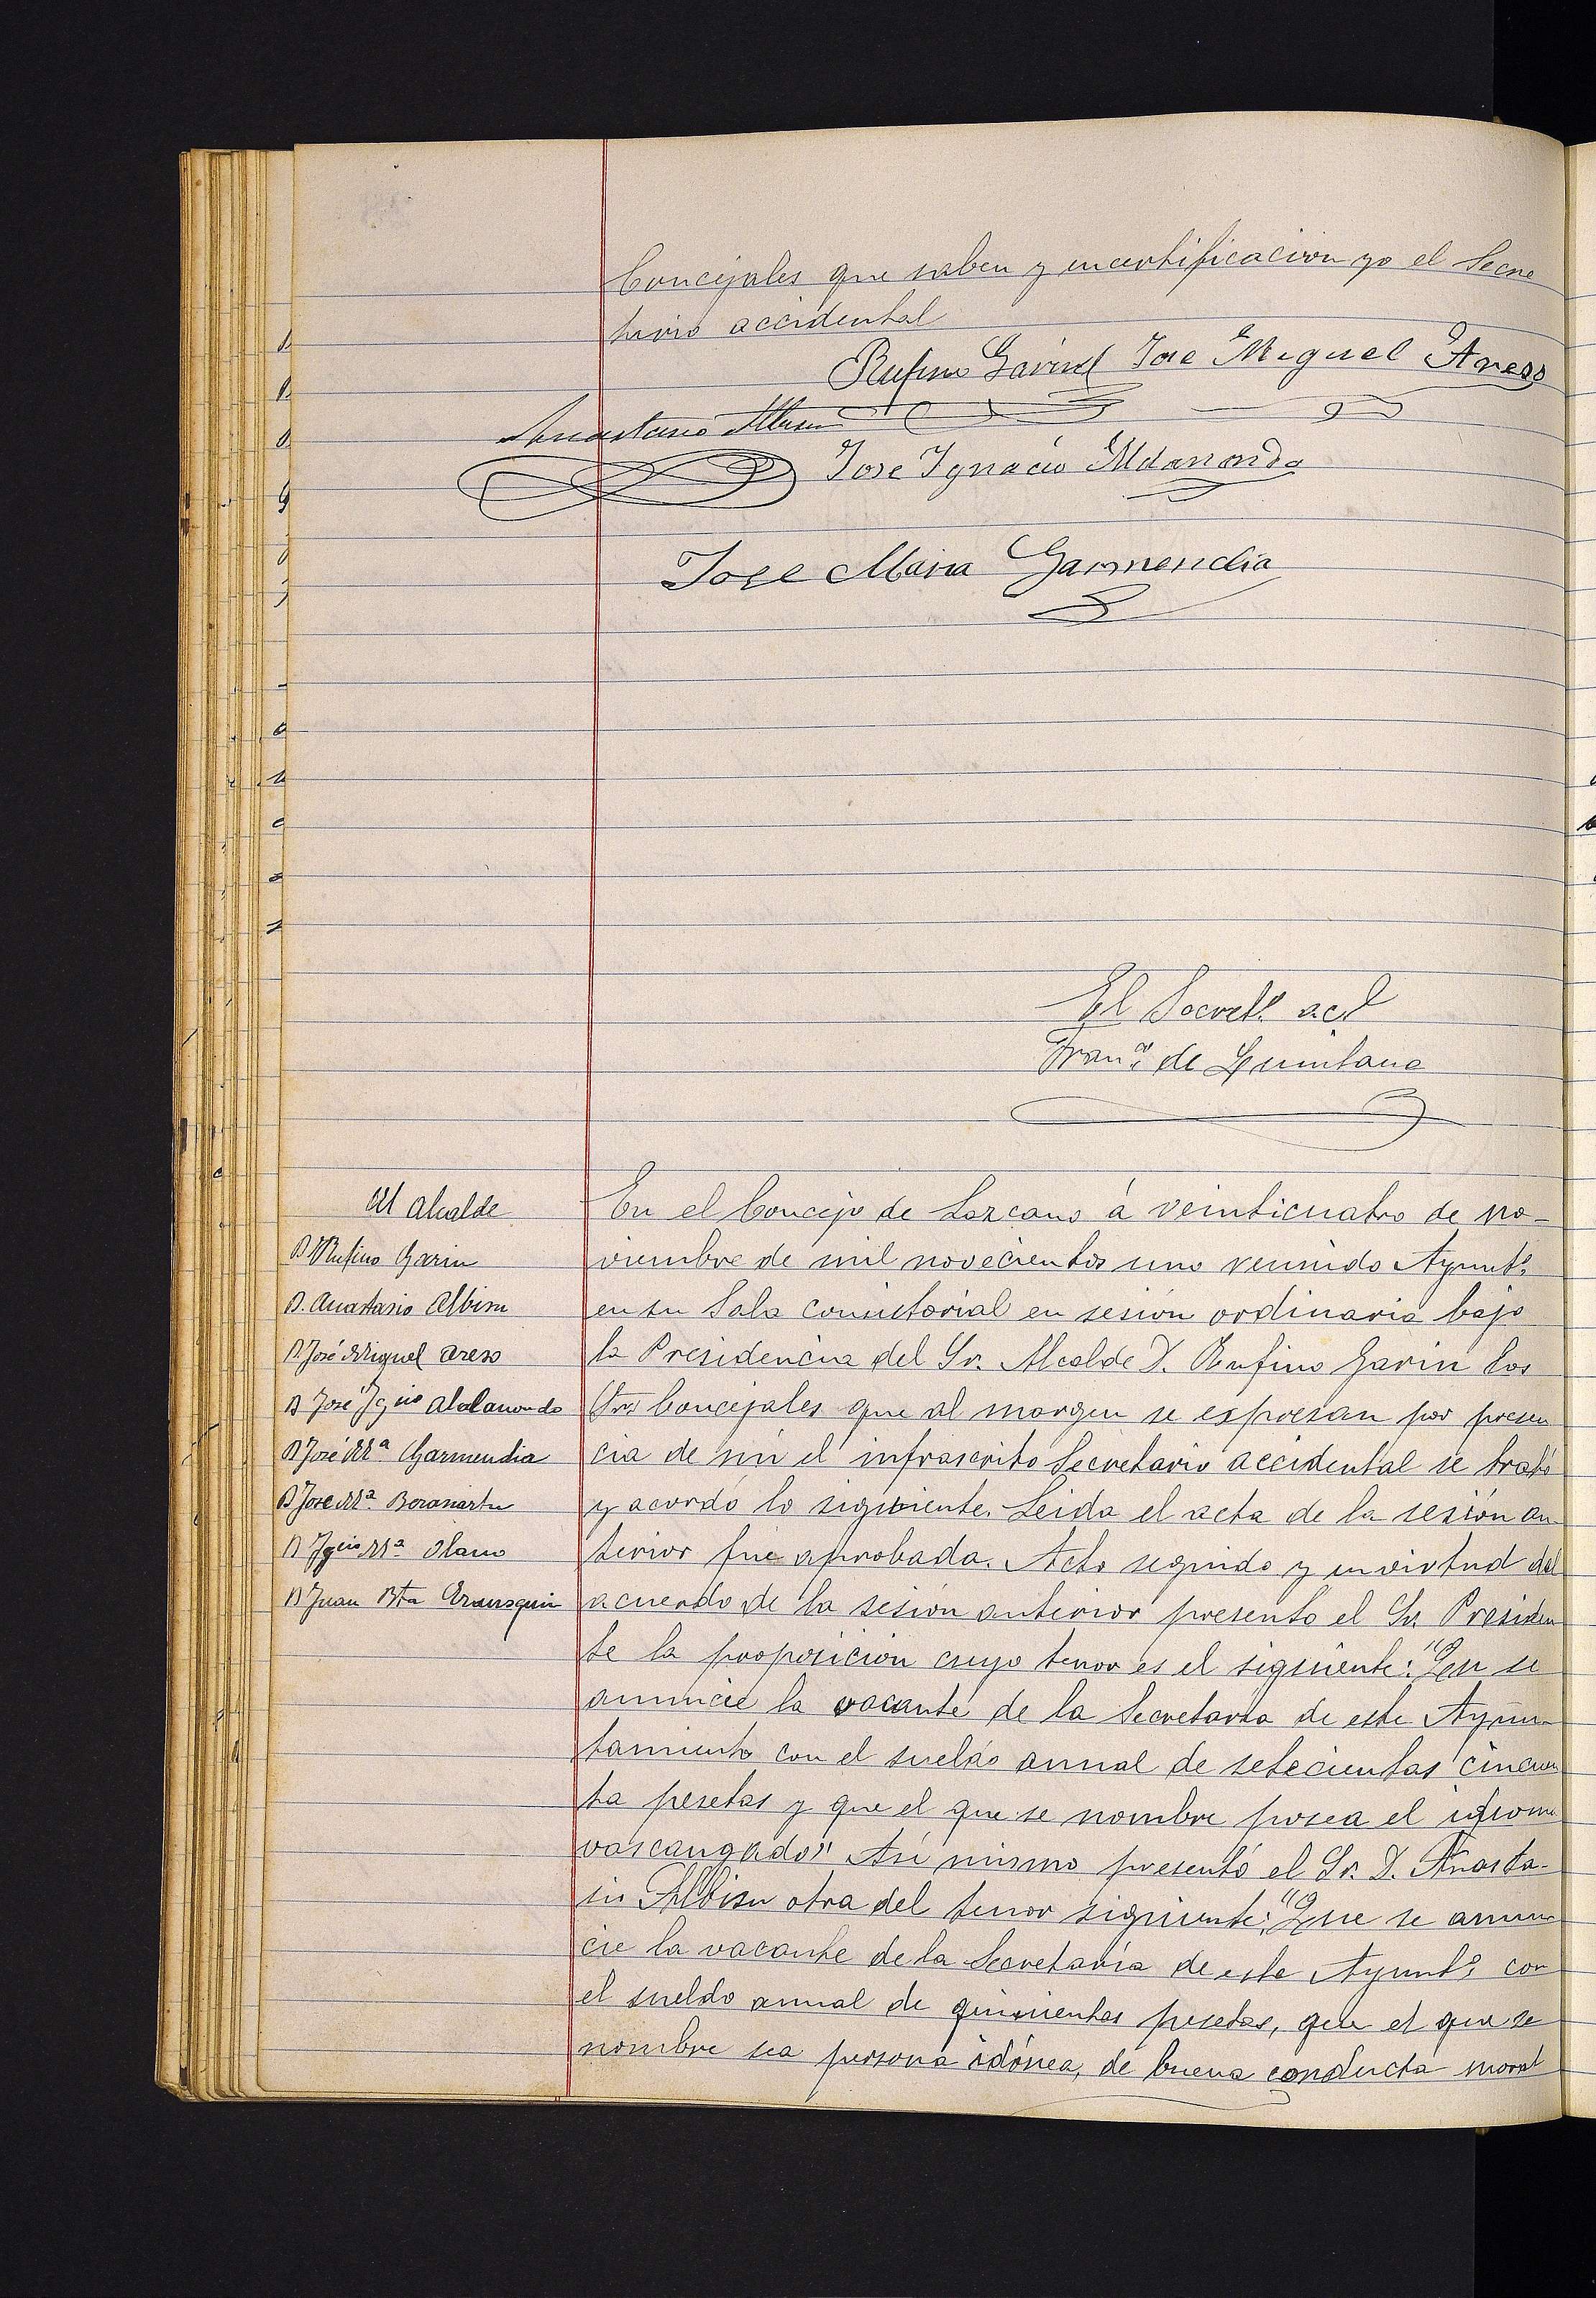 Concejales que saben y en certificacion yo el Secre
tario accidental
Rufino Garin Jose Miguel Areso
Anastasio Albisu
Jose Ygnacio Aldanondo
Jose Maria Garmendia
El Secret.º acc.l
Fran.co de Quintana
El Alcalde
D Rufino Garin
D. Anastasio Albisu
D. José Miguel Areso
D José Ygnio Aldanondo
D José Mª Garmendia
D José Mª
D Ygcio Mª Olano
D Juan Bta
En el Concejo de Lazcano á veinticuatro de no-
viembre de mil novecientos uno reunido Ayuntº
en su Sala consistorial en sesión ordinaria bajo
la Presidencia del Sr. Alcalde D. Rufino Garin los
Sres Concejales que al margen se espresan por presen
cia de mi el infrascrito Secretario accidental se trató
y acordó lo siguiente. Leida el acta de la sesión an-
terior fue aprobada. Acto seguido y en virtud del
acuerdo de la sesión anterior presento el Sr. Presiden
te la proposición cuyo tenor es el siguiente: "Que se
anuncie la vacante de la Secretaria de este Ayun-
tamiento con el sueldo annal de setecientas cincuen
ta pesetas y que el que se nombre posea el idioma
vascongado" Asi mismo presentó el Sr. D. Anasta-
sio Albisu otra del tenor siguiente: "Que se anun-
cie la vacante de la Secretaría de este Ayuntº con
el sueldo annal de quinientas pesetas, que el que se
nombre sea persona idónea, de buena conducta moral